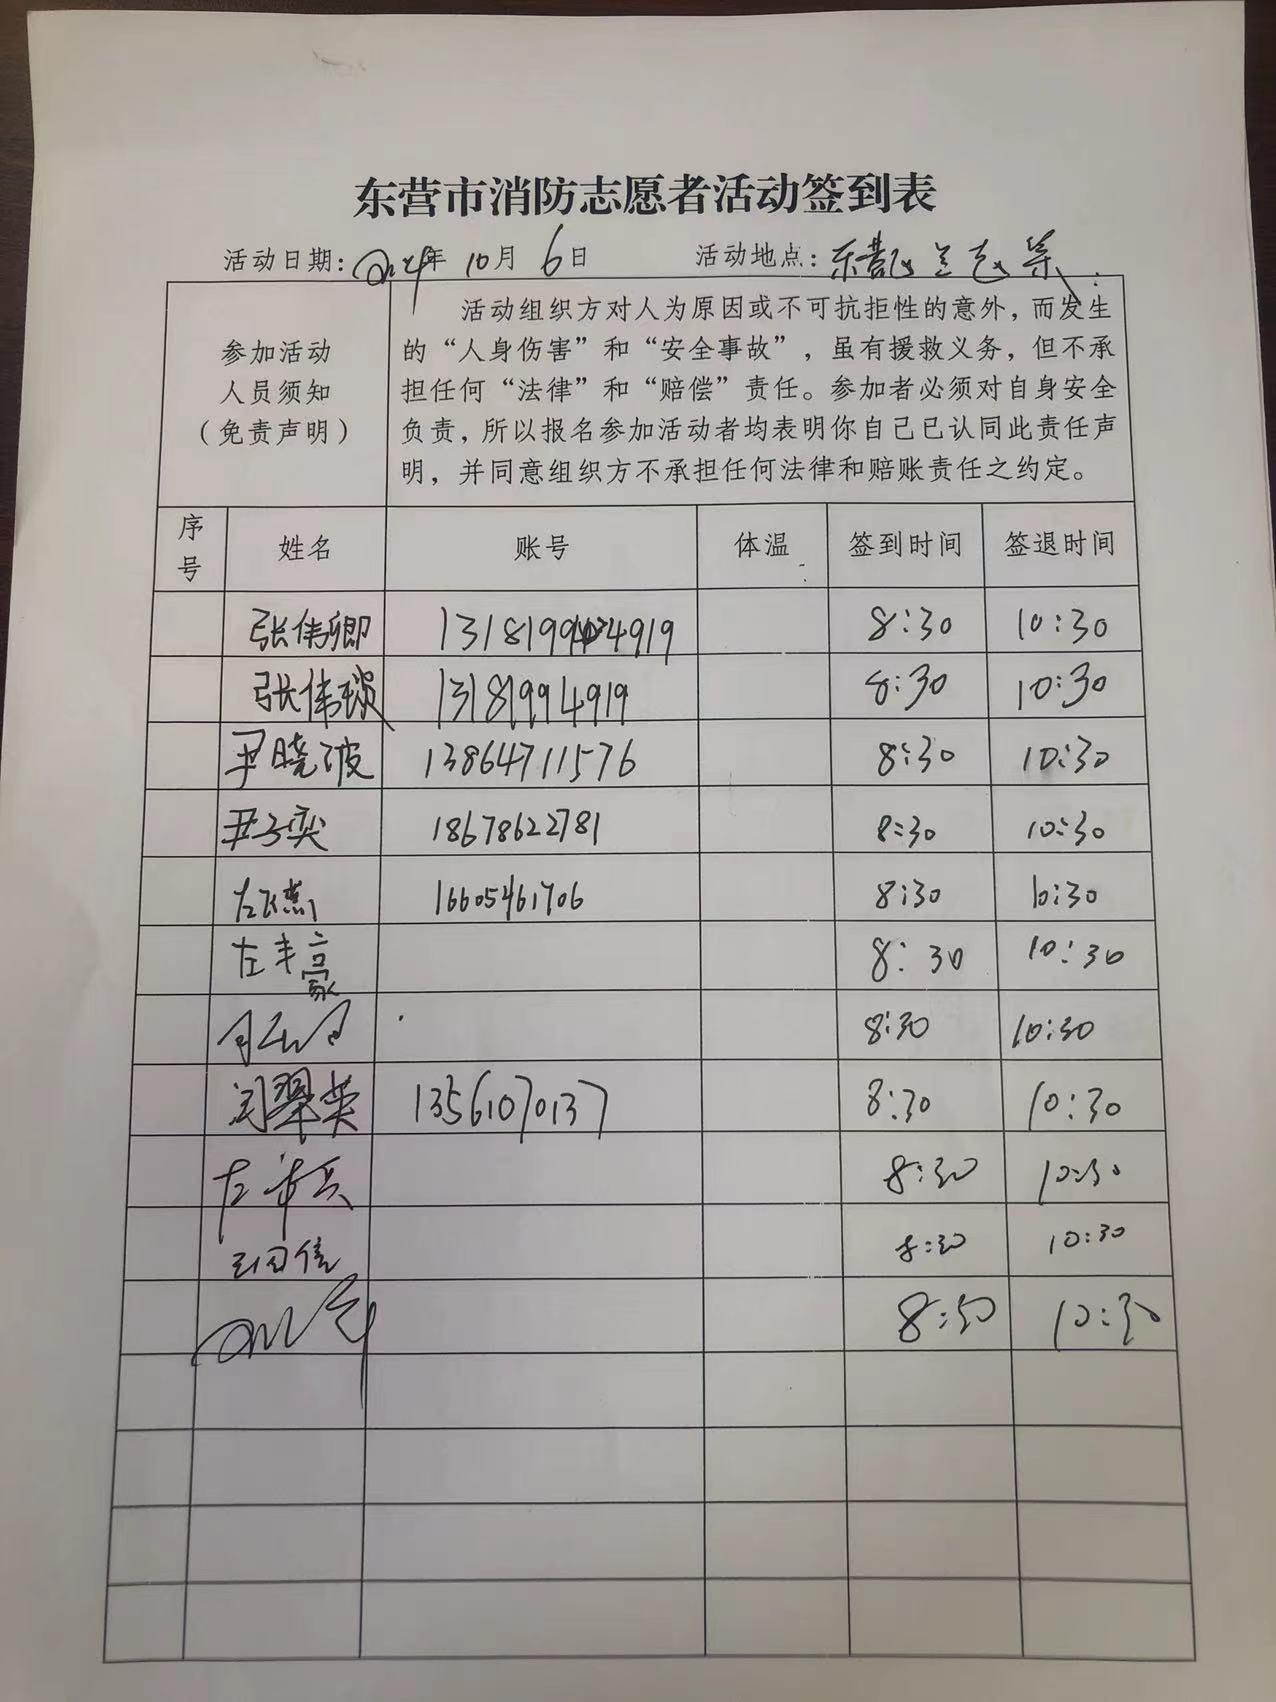 东营市消防志愿者活动签到表
活动日期: 年 10月 6日 活动地点:
参加活动
人员须知
(免责声明)
活动组织方对人为原因或不可抗拒性的意外，而发生
的“人身伤害”和“安全事故”，虽有援救义务，但不承
担任何“法律”和“赔偿”责任。参加者必须对自身安全
负责，所以报名参加活动者均表明你自己已认同此责任声
明，并同意组织方不承担任何法律和赔账责任之约定。
序号 姓名 账号 体温 签到时间 签退时间
张伟卿 8:30 10:30
张伟琰 13181994919 8:30 10:30
尹晓波 13864711576 8:30 10:30
尹子奕 18678622781 8:30 10:30
左飞燕 16605461706 8:30 10:30
左丰豪 8:30 10:30
8:30 10:30
闫翠英 13561070137 8:30 10:30
左 兵 8:30 10:30
信 8:30 10:30
8:30 10:30